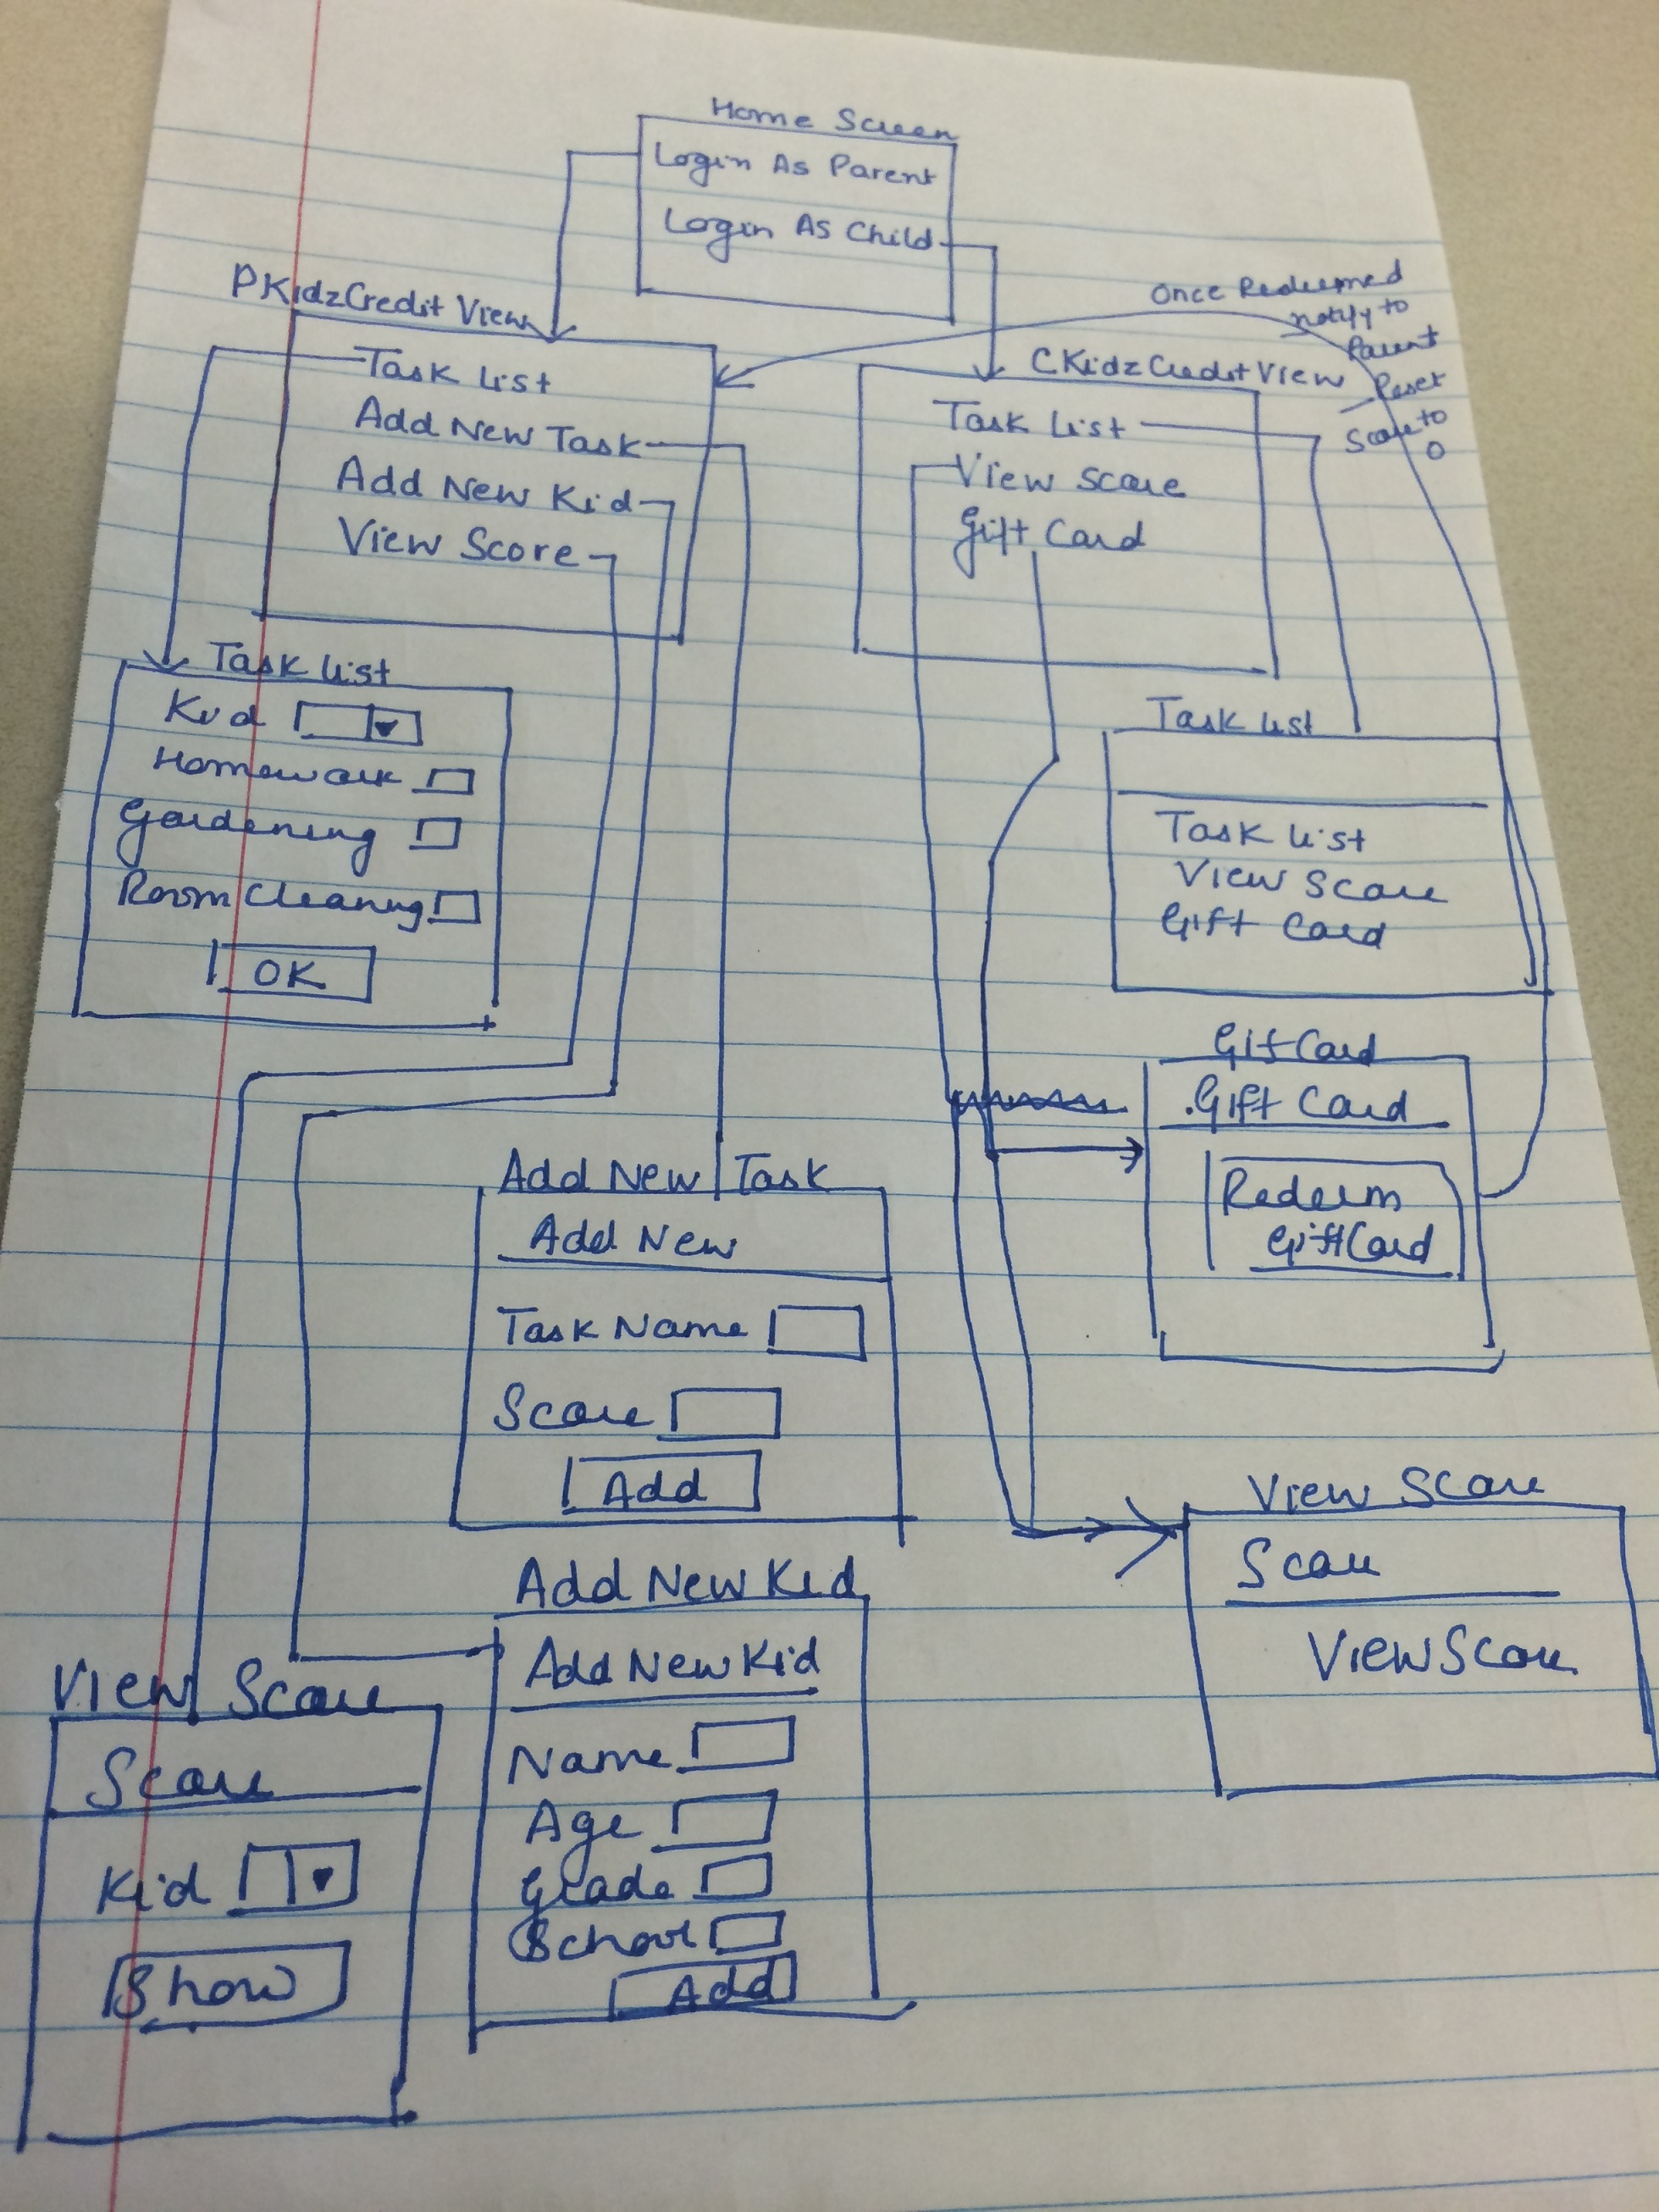 Home Screen
Login As Parent
Login As Child
PKidzCredit View
Task List
Add New Task
Add New Kid
View Score
Once Redeemed
notify to
Parent
Reset
Score to
0
CKidzCreditView
Task List
View Score
Gift Card
Task List
Kid
Homework
Gardening
Room Cleaning
OK
Task List
Task List
View Score
Gift Card
Gift Card
.Gift Card
Redeem
GiftCard
Add New Task
Add New
Task Name
Score
Add
View Score
Score
View Score
Add New Kid
Add New Kid
Name
Age
Grade
School
Add
View Score
Score
Kid
Show